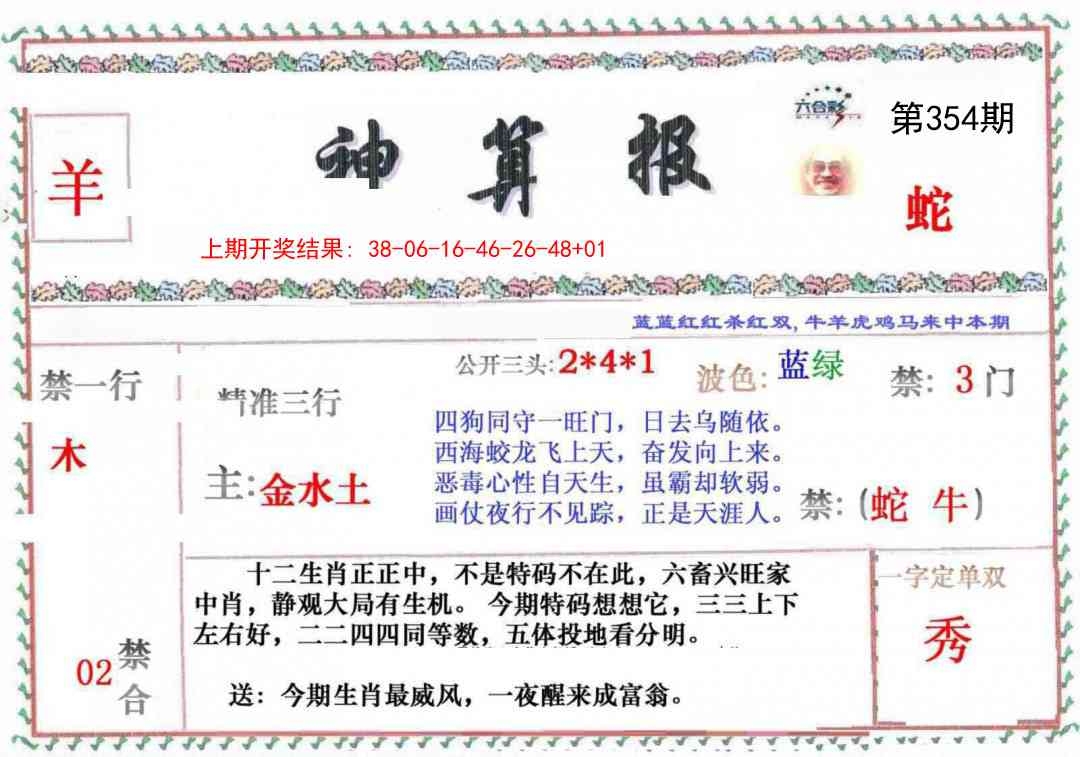 六合彩
第354期
神算报
羊
蛇
上期开奖结果: 38-06-16-46-26-48+01
蓝蓝红红杀红双,牛羊虎鸡马来中本期
公开三头:2*4*1
波色: 蓝绿
禁: 3门
禁一行
木
精准三行
主:金水土
四狗同守一旺门，日去乌随依。
西海蛟龙飞上天，奋发向上来。
恶毒心性自天生，虽霸却软弱。
画仗夜行不见踪，正是天涯人。
禁:(蛇 牛)
十二生肖正正中，不是特码不在此，六畜兴旺家
中肖，静观大局有生机。 今期特码想想它，三三上下
左右好，二二四四同等数，五体投地看分明。
送：今期生肖最威风，一夜醒来成富翁。
02
禁合
一字定单双
秀